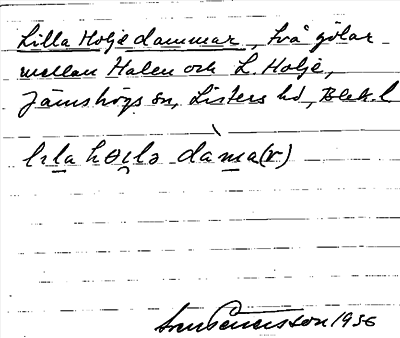 Lilla Holje dammar, två gölar
mellan Halen och L. Holje,
Jämshögs sn, Listers hd, Blek. l
lıla hɵı̯lə dama(r)
1956